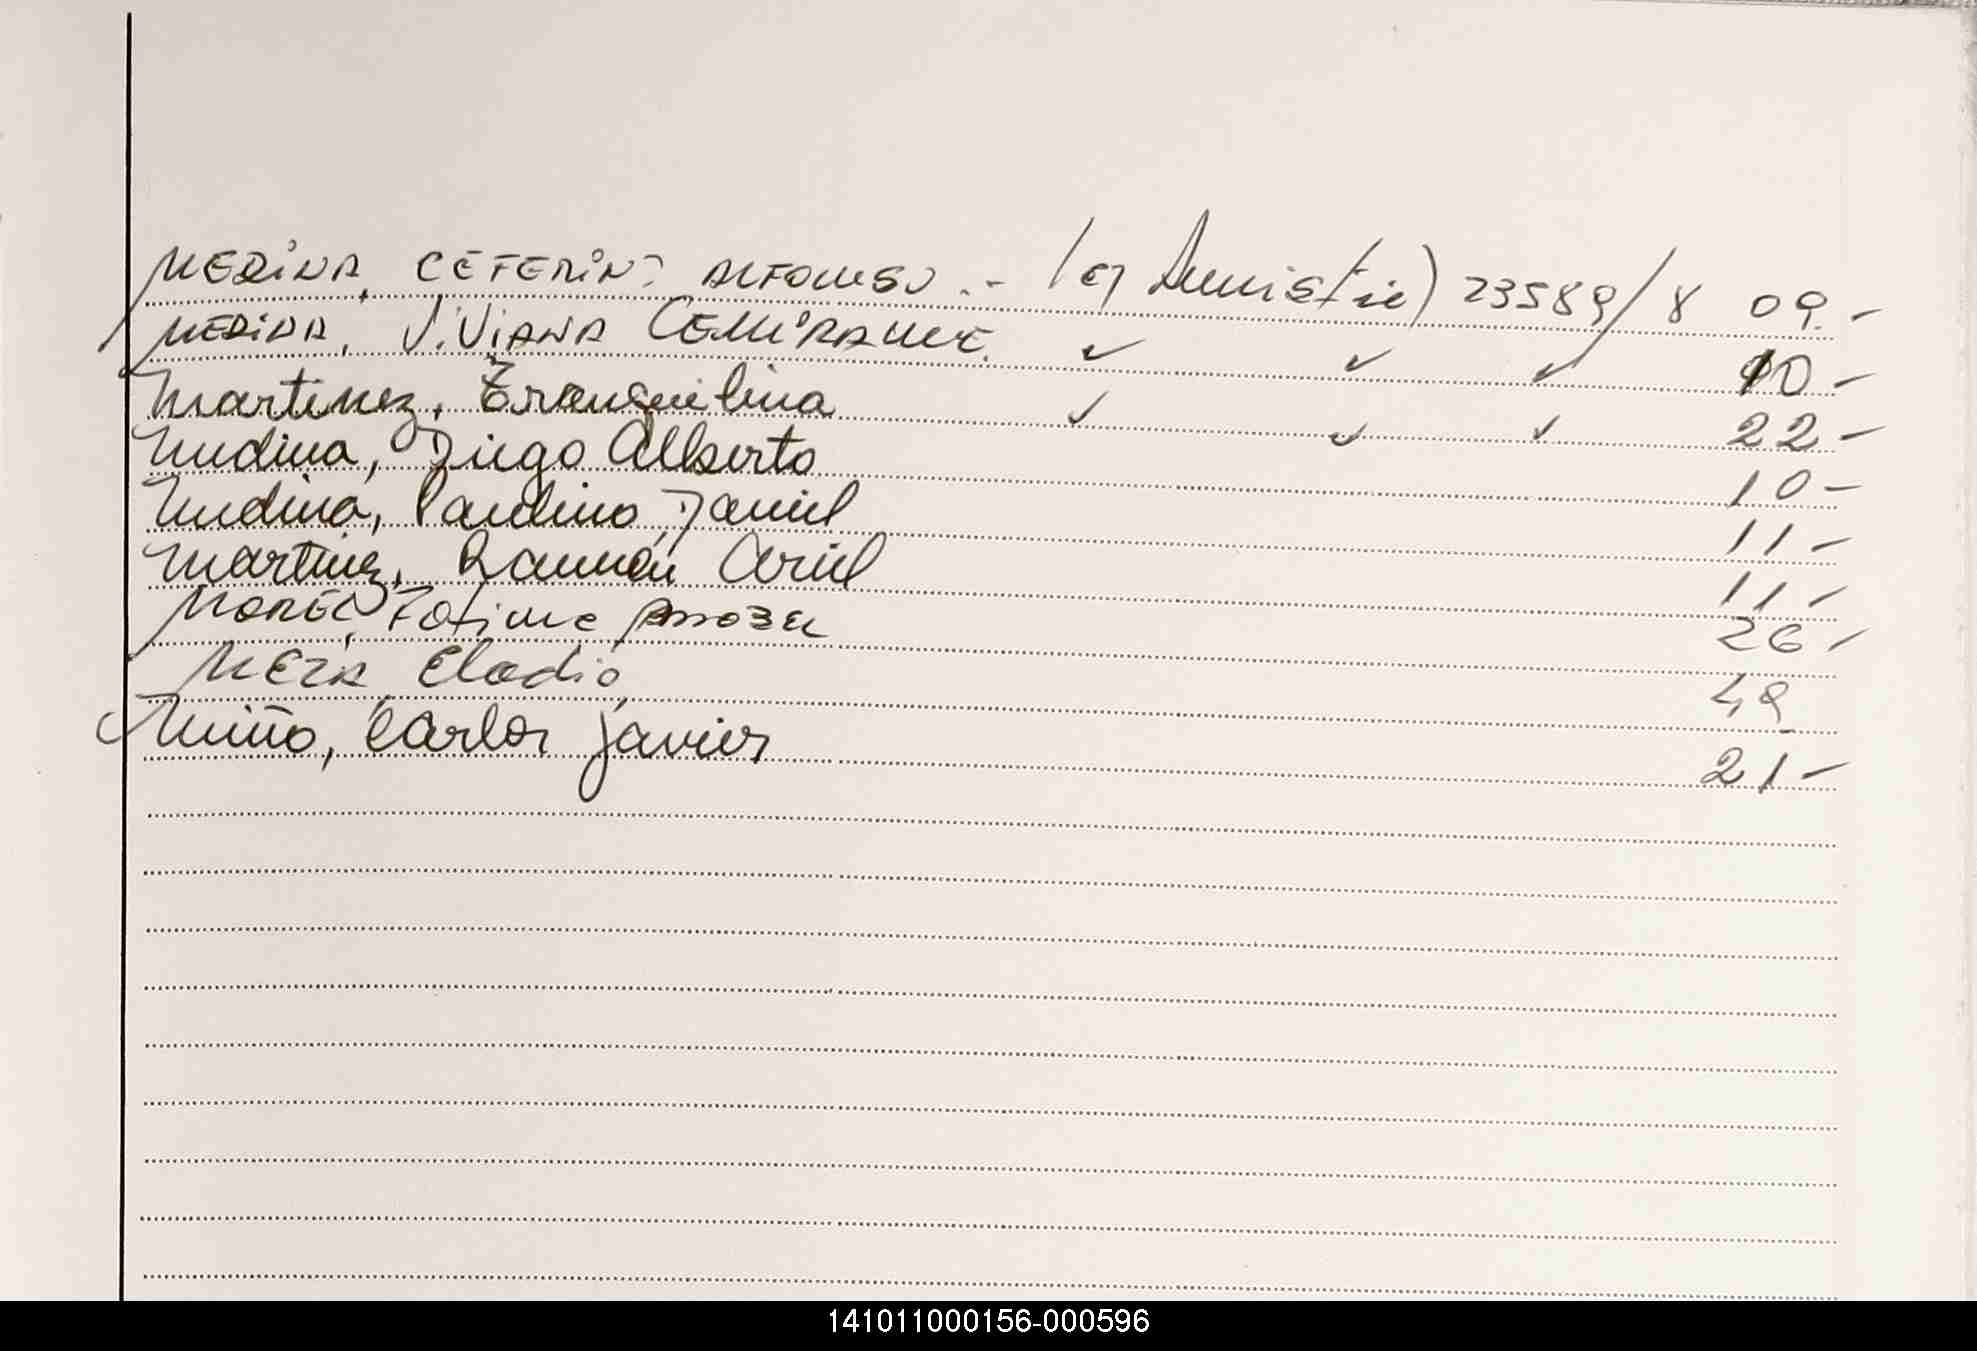 MEDINA, CEFERINO ALFONSO .- (ley Amnistia) 23589/8 09.-
MEDINA, ViViANA CEMIRAME. ✓ ✓ ✓ 10.-
Martinez, Tranquilina ✓ ✓ ✓ 22-
Medina, Diego Alberto 10-
Medina, Paulino Daniel 11-
Martinez, Ramón Ariel 11-
MOREL, Fatima 26-
MEZA, Eladio, 49-
Miño, Carlos Javier 21-
141011000156-000596